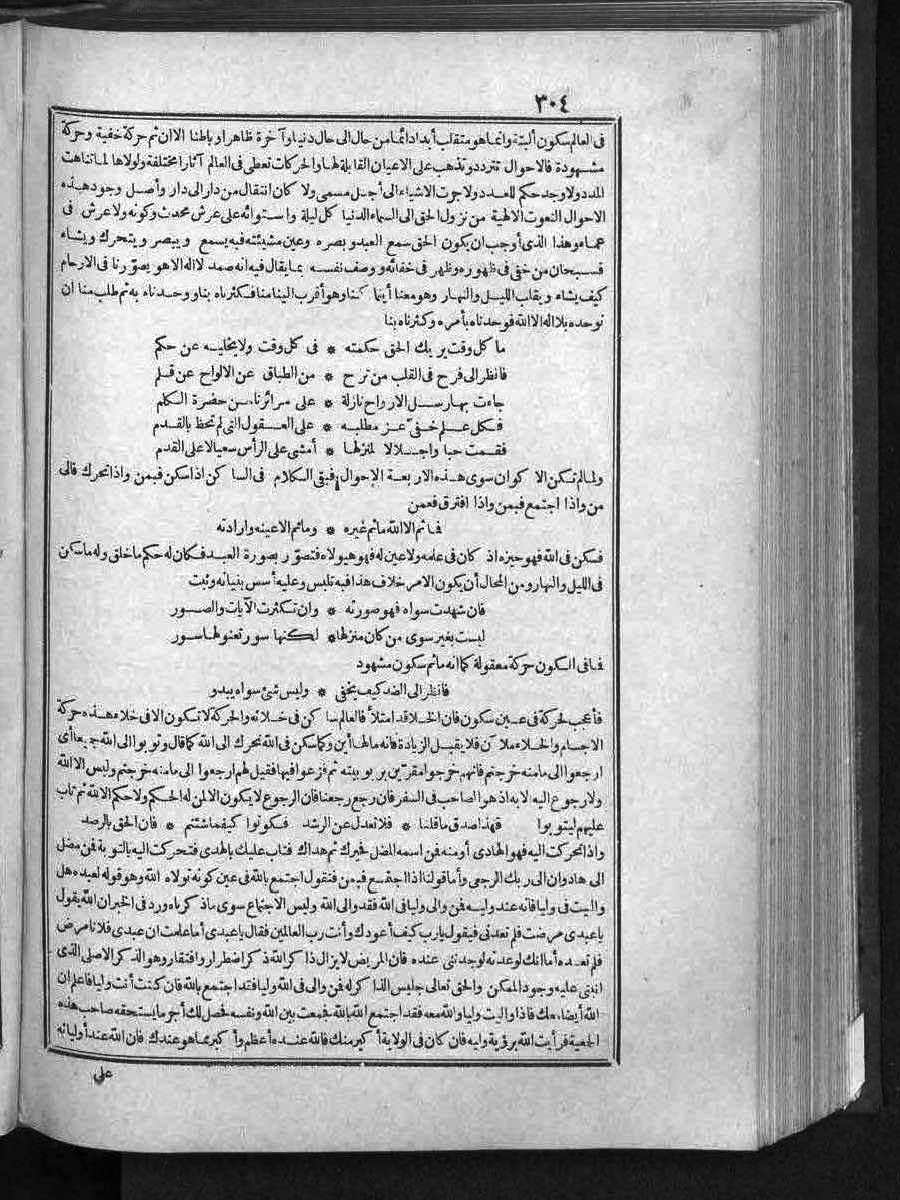 ٣٠٤
فى العالم سكون ألبتة وانماهو متقلب أبدا دائما من حال الى حال دنيا وآخرة ظاهرا وباطنا الا ان ثم حركة خفية وحركة
مشهودة فالاحوال تتردد وتذهب على الاعيان القابلة لها والحركات تعطى فى العالم آثارا مختلفة ولولاها لما تناهت
المدد ولا وجد حكم للعدد ولا جرت الاشياء الى أجل مسمى ولا كان انتقال من دار الى دار وأصل وجود هذه
الاحوال النعوت الالهية من نزول الحق الى السماء الدنيا كل ليلة واستوائه على عرش محدث وكونه ولا عرش فى
عماء وهذا الذى أوجب ان يكون الحق سمع العبد وبصره وعين مشيئته فبه يسمع ويبصر ويتحرك ويشاء
فسبحان من خفى فى ظهوره وظهر فى خفائه ووصف نفسه بما يقال فيه انه صمد لااله الاهو يصوّرنا فى الارحام
كيف يشاء ويقلب الليل والنهار وهو معنا أينما كنا وهو أقرب الينا منا فكثرناه بنا ووحدناه به ثم طلب منا ان
نوحده بلااله الاالله فوحدناه بأمره وكثرناه بنا
ما كل وقت يريك الحق حكمته * فى كل وقت ولا يخليه عن حكم
فانظر الى فرح فى القلب من ترح * من الطباق عن الالواح عن قلم
جاءت بها رسل الارواح نازلة * على سرائرنا من حضرة الكلم
فكل علم خفىّ عز مطلبه * على العقول التى لم تحظ بالقدم
فقمت حبا واجلالا لمنزلها * أمشى على الرأس سعيا لا على القدم
ولما لم تكن الاكوان سوى هذه الاربعة الاحوال فبقى الكلام فى الساكن اذا سكن فبمن واذا تحرك فالى
من واذا اجتمع فبمن واذا افترق فعمن
فما ثم الا الله ما ثم غيره * وما ثم الا عينه وارادته
فسكن فى الله فهو حيزه اذ كان فى علمه ولا عين له فهو هيولاه فتصوّر بصورة العبد فكان له حكم ما خلق وله ما سكن
فى الليل والنهار ومن المحال أن يكون الامر خلاف هذا فبه تلبس وعليه أسس بنيانه وثبت
فان شهدت سواه فهو صورته * وان تكثرت الآيات والصور
ليست بغير سوى من كان منزلها * لكنها سور تعنو لها سور
فما فى السكون حركة معقولة كما انه ما ثم سكون مشهود
فانظر الى الضد كيف يخفى * وليس شئ سواه يبدو
فأعجب لحركة فى عين سكون فان الخلا قد امتلأ فالعالم ساكن فى خلائه والحركة لا تكون الا فى خلاء هذه حركة
الاجسام والخلاء ملآن فلا يقبل الزيادة فانه ما لها أين وكما سكن فى الله تحرك الى الله كما قال وتوبوا الى الله جميعا أى
ارجعوا الى ما منه خرجتم فانهم خرجوا مقرّين بربوبيته ثم فزعوا فيها فقيل لهم ارجعوا الى ما منه خرجتم وليس الا الله
ولا رجوع اليه الا به اذ هو الصاحب فى السفر فان رجع رجعنا فان الرجوع لا يكون الا لمن له الحكم ولا حكم الا لله ثم تاب
عليهم ليتوبوا فهذا صدق ما قلنا * فلا تعدل عن الرشد فكونوا كيفما شئتم * فان الحق بالرصد
واذا تحركت اليه فهو الهادى أو منه فن اسمه المضل خيرك ثم هداك فتاب عليك بالهدى فتحركت اليه بالتوبة فمن مضل
الى هاد وان الى ربك الرجعى وأما قولنا اذا اجتمع فبمن فنقول اجتمع بالله فى عين كونه تولاه الله وهو قوله لعبده هل
واليت فى وليا فانه عند وليه فمن والى وليا فى الله فقد والى الله وليس الاجتماع سوى ما ذكرناه ورد فى الخبر ان الله يقول
يا عبدى مرضت فلم تعدنى فيقول يارب كيف أعودك وأنت رب العالمين فقال يا عبدى أما علمت ان عبدى فلانا مرض
فلم تعده أما انك لو عدته لوجدتنى عنده فان المريض لا يزال ذاكرا لله ذكر اضطرار وافتقار وهو الذكر الاصلى الذى
انبنى عليه وجود الممكن والحق تعالى جليس الذاكر له فمن والى فى الله وليا فقد اجتمع بالله فان كنت أنت وليا فاعلم ان
الله أيضا معك فاذا واليت وليا والله معه فقد اجتمع الله بالله فجمعت بين الله ونفسه فحصل لك أجر ما يستحقه صاحب هذه
الجمعية فرأيت الله برؤية وليه فان كان فى الولاية أكبر منك فالله عنده أعظم وأكبر مما هو عندك فان الله عند أوليائه
على